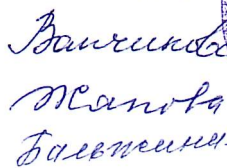 Ванчикова
Жапова
Бальжини